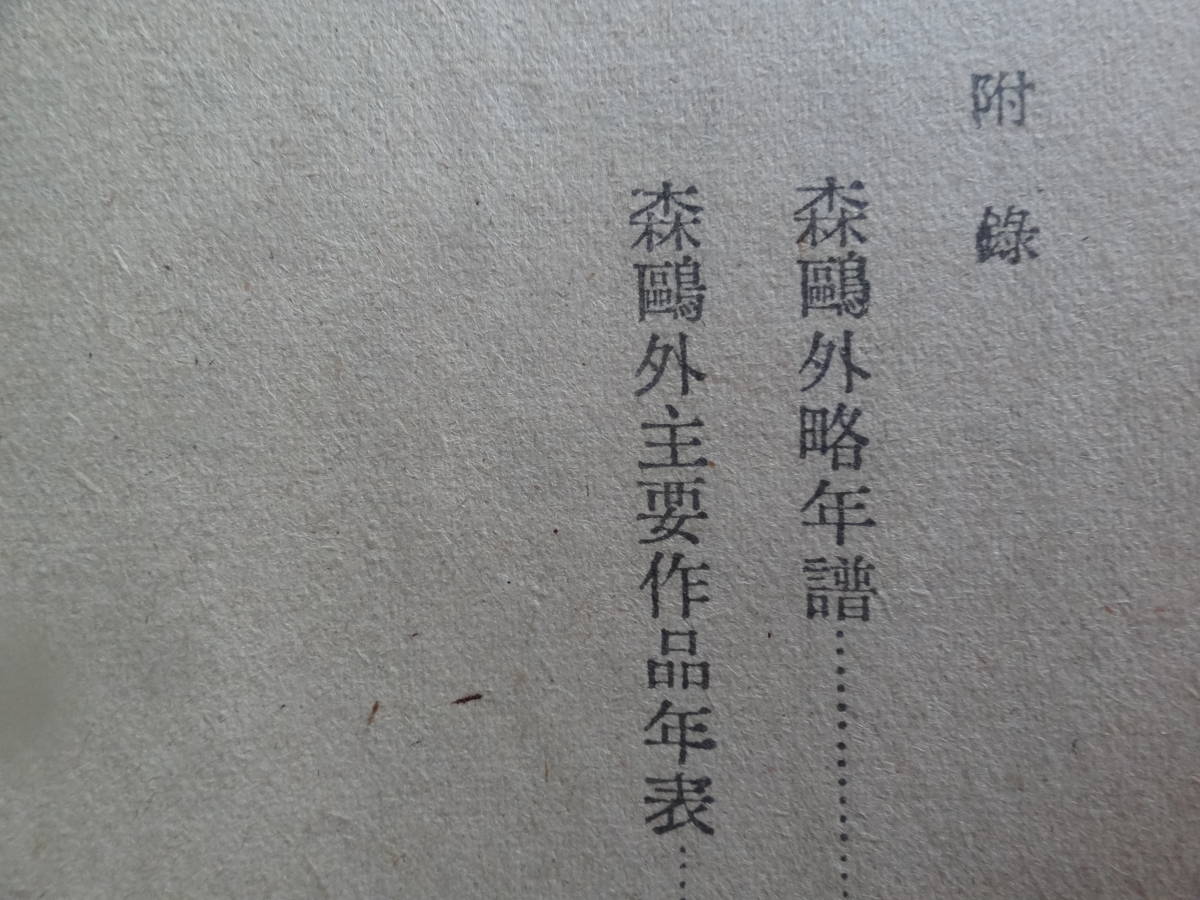 附錄
森鷗外略年譜……………
森鷗外主要作品年表……